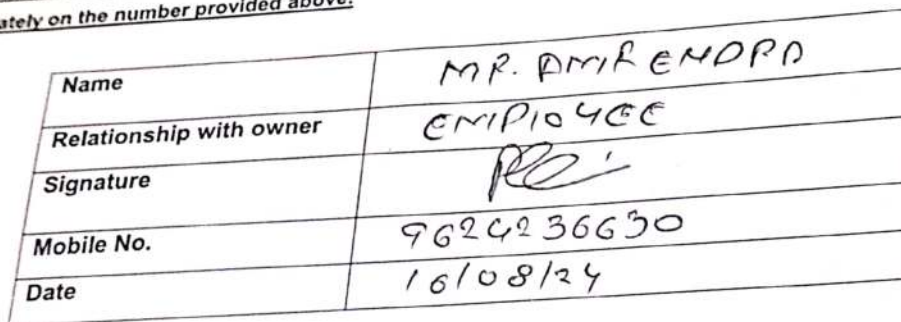 ately on the number provided above.
Name MR. AMIRENDRA
Relationship with owner EMPLOYEE
Signature
Mobile No. 9624236630
Date 16/08/24